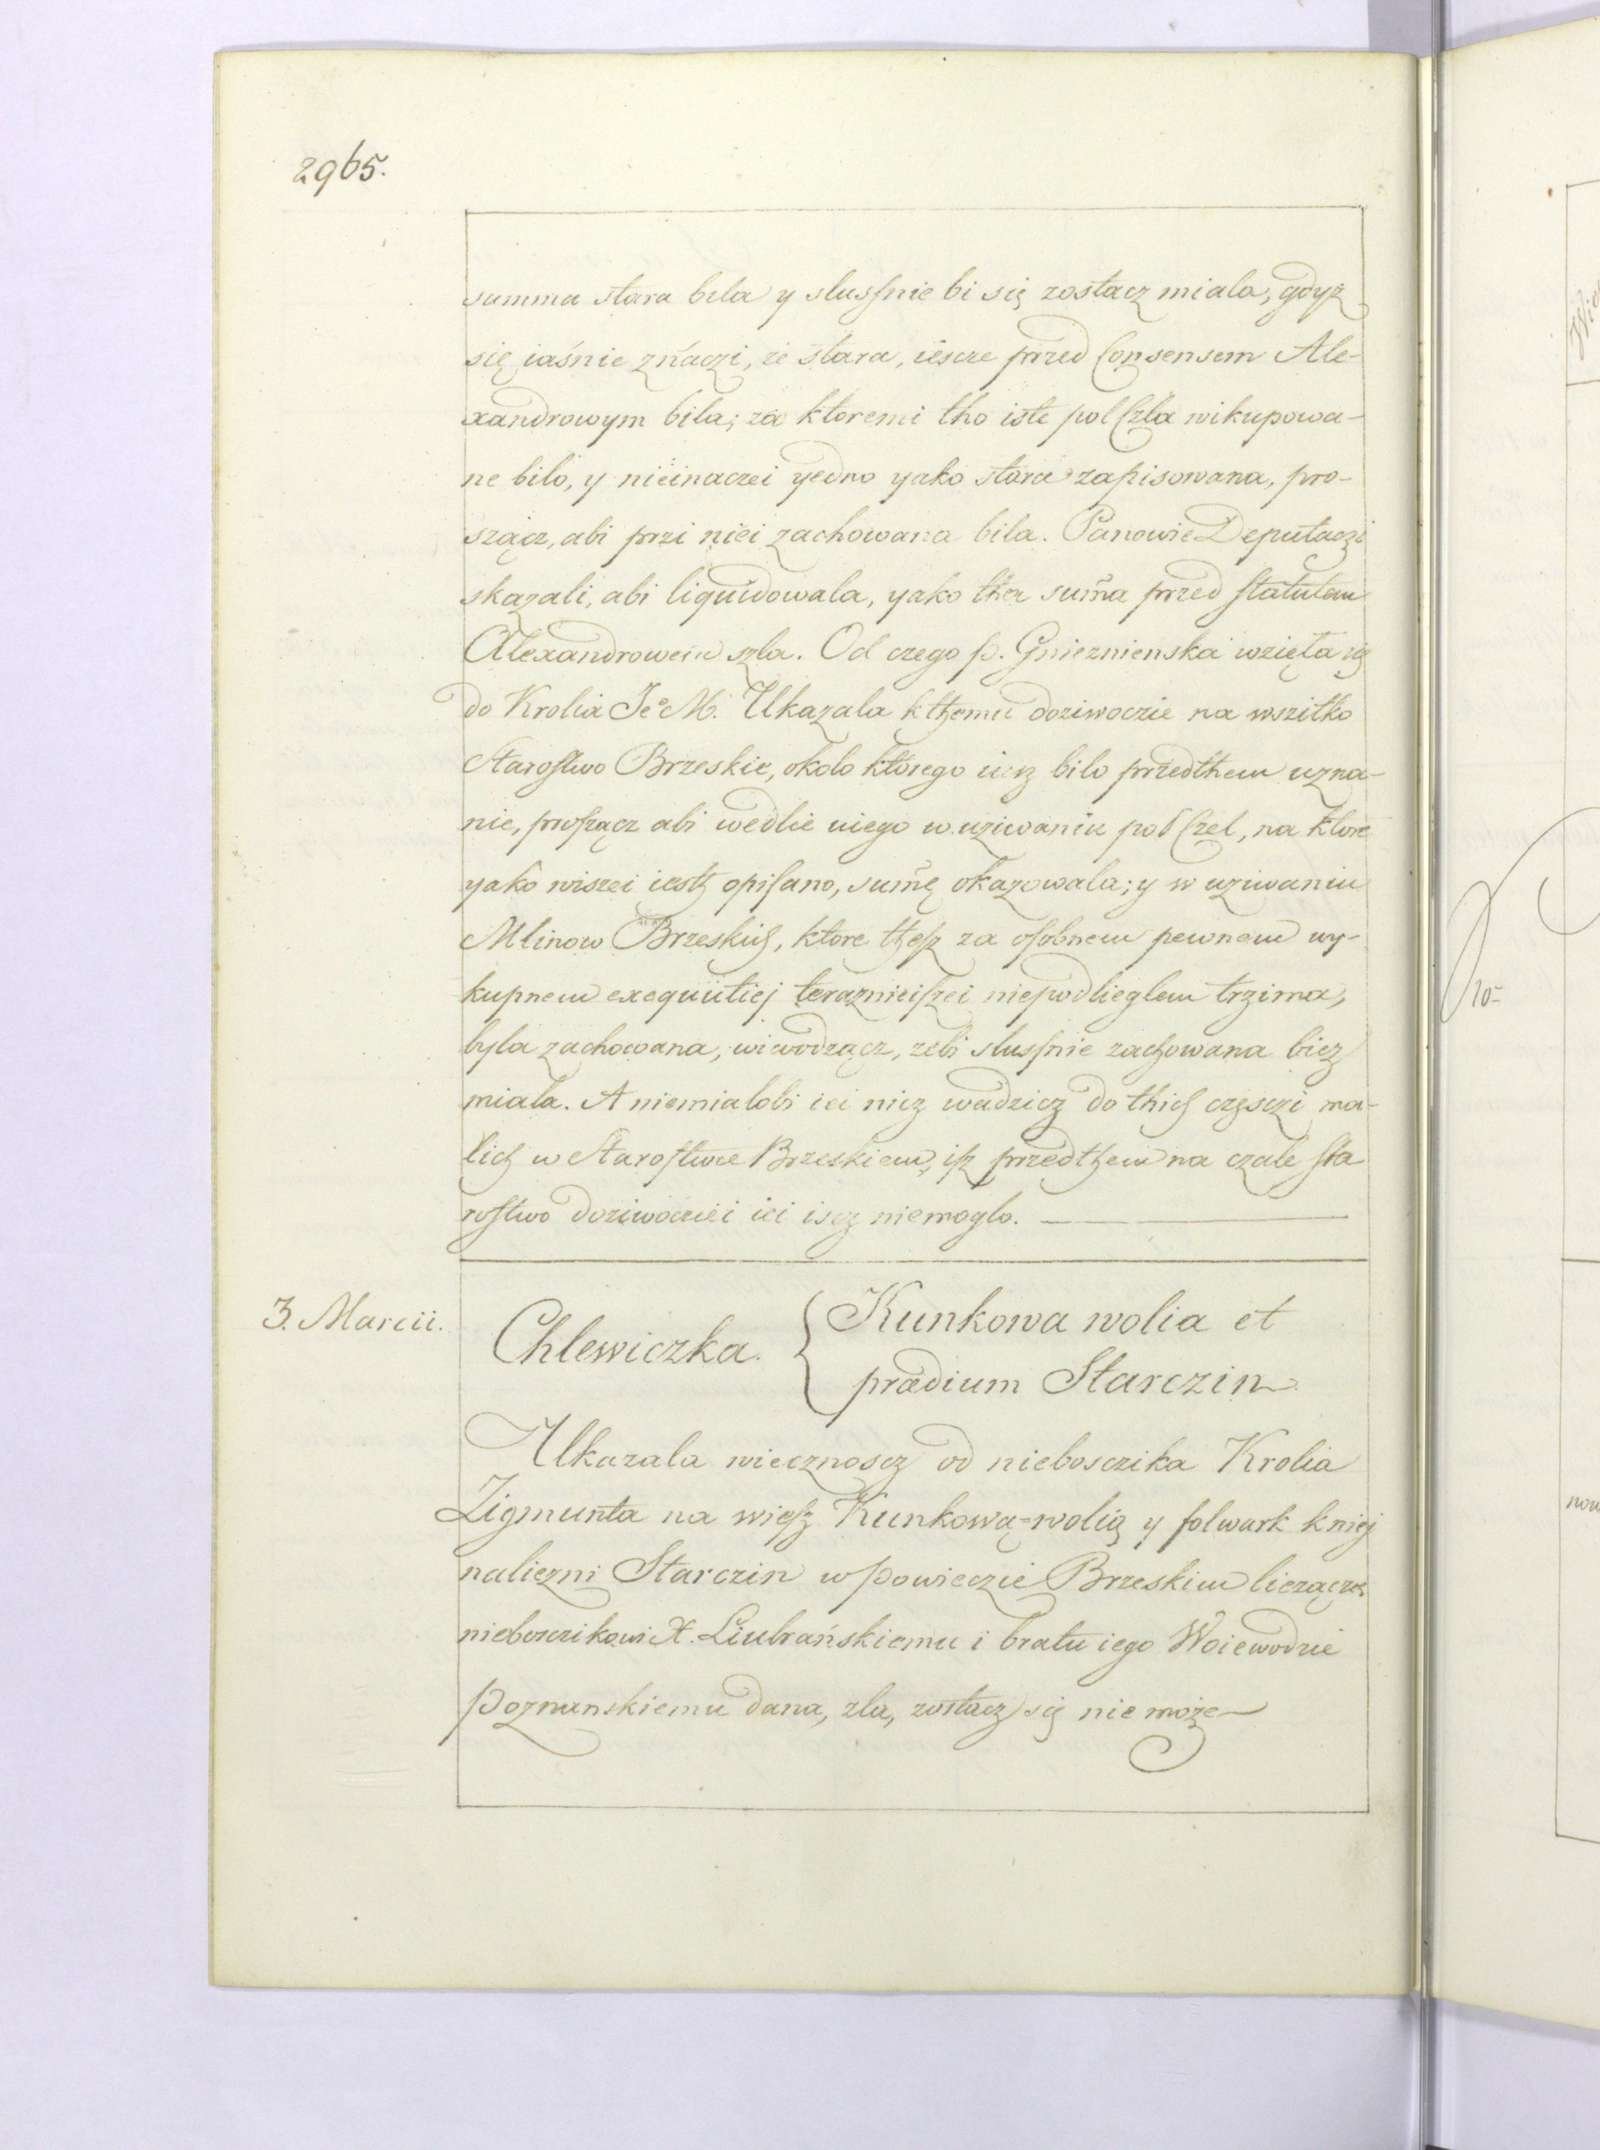 2965.
summa stara bela y slusſnie bi się zostacz miala, gdyż
się iaśnie znaczi, że stara, iescze przed Consensem Ale-
xandrowym bila; za ktoremi tho iste pol Czla wikupowa-
ne bilo, y nieinaczei yedno yako stara zapisowana, pro-
szącz, abi przi niei zachowana bila. Panowie Deputaczi
skazali, abi liquidowala, yako tha sum̃a przed statutem
Alexandrowem szla. Od czego p. Gnieznienska wzięła się
do Krolia Je° M. Ukazala k themu doziwoczie na wszitko
Starostwo Brzeskie, okolo ktorego iusz bilo przedthem uzna-
nie, proszącz abi wedlie niego w uziwaniu pol Czel, na ktore
yako wiszei iesth opisano, sum̃ę okazowala; y w uziwaniu
Mlinow Brzeskich, ktore thesz za osobnem pewnem wy-
kupnem exequutiej teraznieiszei niepodlieglem trzima,
byla zachowana, wiwodzącz, zebi slusſnie zachowana bicz
miala. A niemialobi iei nicz wadzicz do thich częsczi ma-
lich w Starostwie Brzeskiem, isz przedthem na czale Sta
rostwo doziwoczie iei iscz niemoglo.
3. Marcii.
Chlewiczka. { Kunkowa wolia et
prædium Starczin
Ukazala wiecznoscz od nieboszczika Krolia
Zigmunta na wiesz Kunkową-wolią y folwark kniej
naliezni Starczin w Powieczie Brzeskim liczącze
nieboszczikowi X. Liubrańskiemu i bratu iego Woiewodzie
Poznanskiemu dana, zla, zostacz się nie może
10-